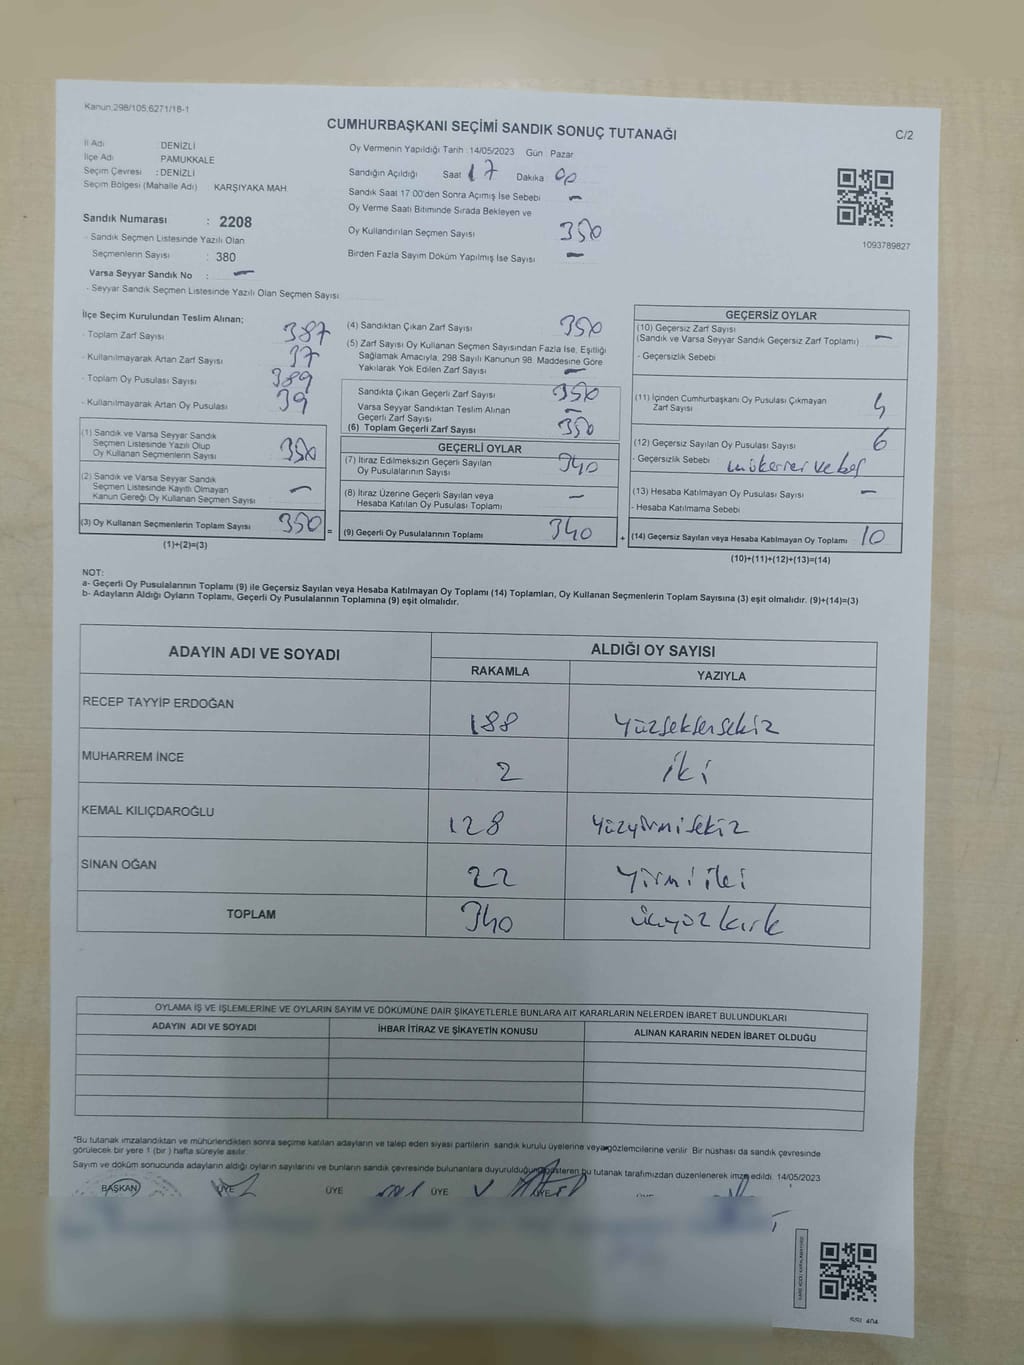 Kanun.298/105,6271/18-1
CUMHURBAŞKANI SEÇİMİ SANDIK SONUÇ TUTANAĞI
C/2
İl Adı : DENİZLİ
İlçe Adı PAMUKKALE
Seçim Çevresi : DENİZLİ
Seçim Bölgesi (Mahalle Adı) KARŞIYAKA MAH
Sandık Numarası : 2208
- Sandık Seçmen Listesinde Yazılı Olan
Seçmenlerin Sayısı : 380
Varsa Seyyar Sandık No : —
- Seyyar Sandık Seçmen Listesinde Yazılı Olan Seçmen Sayısı
Oy Vermenin Yapıldığı Tarih :14/05/2023 Gün : Pazar
Sandığın Açıldığı Saat 17 Dakika 00
Sandık Saat 17 00'den Sonra Açımış İse Sebebi —
Oy Verme Saati Bitiminde Sırada Bekleyen ve
Oy Kullandırılan Seçmen Sayısı 350
Birden Fazla Sayım Döküm Yapılmış İse Sayısı —
1093789827
İlçe Seçim Kurulundan Teslim Alınan;
- Toplam Zarf Sayısı 387
- Kullanılmayarak Artan Zarf Sayısı 37
- Toplam Oy Pusulası Sayısı 389
- Kullanılmayarak Artan Oy Pusulası 39
(1) Sandık ve Varsa Seyyar Sandık
Seçmen Listesinde Yazılı Olup
Oy Kullanan Seçmenlerin Sayısı 350
(2) Sandık ve Varsa Seyyar Sandık
Seçmen Listesinde Kayıtlı Olmayan
Kanun Gereği Oy Kullanan Seçmen Sayısı —
(3) Oy Kullanan Seçmenlerin Toplam Sayısı 350 =
(1)+(2)=(3)
(4) Sandıktan Çıkan Zarf Sayısı 350
(5) Zarf Sayısı Oy Kullanan Seçmen Sayısından Fazla İse, Eşitliği
Sağlamak Amacıyla, 298 Sayılı Kanunun 98. Maddesine Göre
Yakılarak Yok Edilen Zarf Sayısı —
Sandıkta Çıkan Geçerli Zarf Sayısı 350
Varsa Seyyar Sandıktan Teslim Alınan
Geçerli Zarf Sayısı —
(6) Toplam Geçerli Zarf Sayısı 350
GEÇERLİ OYLAR
(7) İtiraz Edilmeksizin Geçerli Sayılan
Oy Pusulalarının Sayısı 340
(8) İtiraz Üzerine Geçerli Sayılan veya
Hesaba Katılan Oy Pusulası Toplamı —
(9) Geçerli Oy Pusulalarının Toplamı 340 +
GEÇERSİZ OYLAR
(10) Geçersiz Zarf Sayısı
(Sandık ve Varsa Seyyar Sandık Geçersiz Zarf Toplamı) —
- Geçersizlik Sebebi
(11) İçinden Cumhurbaşkanı Oy Pusulası Çıkmayan
Zarf Sayısı 4
(12) Geçersiz Sayılan Oy Pusulası Sayısı 6
- Geçersizlik Sebebi mükerrer ve boş
(13) Hesaba Katılmayan Oy Pusulası Sayısı —
- Hesaba Katılmama Sebebi
(14) Geçersiz Sayılan veya Hesaba Katılmayan Oy Toplamı 10
(10)+(11)+(12)+(13)=(14)
NOT:
a- Geçerli Oy Pusulalarının Toplamı (9) ile Geçersiz Sayılan veya Hesaba Katılmayan Oy Toplamı (14) Toplamları, Oy Kullanan Seçmenlerin Toplam Sayısına (3) eşit olmalıdır. (9)+(14)=(3)
b- Adayların Aldığı Oyların Toplamı, Geçerli Oy Pusulalarının Toplamına (9) eşit olmalıdır.
ADAYIN ADI VE SOYADI ALDIĞI OY SAYISI
RAKAMLA YAZIYLA
RECEP TAYYİP ERDOĞAN 188 Yüzseksensekiz
MUHARREM İNCE 2 iki
KEMAL KILIÇDAROĞLU 128 Yüzyirmisekiz
SİNAN OĞAN 22 Yirmi iki
TOPLAM 340 üçyüz kırk
OYLAMA İŞ VE İŞLEMLERİNE VE OYLARIN SAYIM VE DÖKÜMÜNE DAİR ŞİKAYETLERLE BUNLARA AİT KARARLARIN NELERDEN İBARET BULUNDUKLARI
ADAYIN ADI VE SOYADI İHBAR İTİRAZ VE ŞİKAYETİN KONUSU ALINAN KARARIN NEDEN İBARET OLDUĞU
*Bu tutanak imzalandıktan ve mühürlendikten sonra seçime katılan adayların ve talep eden siyasi partilerin sandık kurulu üyelerine veya gözlemcilerine verilir. Bir nüshası da sandık çevresinde
görülecek bir yere 1 (bir ) hafta süreyle asılır.
Sayım ve döküm sonucunda adayların aldığı oyların sayılarını ve bunların sandık çevresinde bulunanlara duyurulduğunu gösteren bu tutanak tarafımızdan düzenlenerek imza edildi. 14/05/2023
BAŞKAN ÜYE ÜYE ÜYE ÜYE
SSL 404